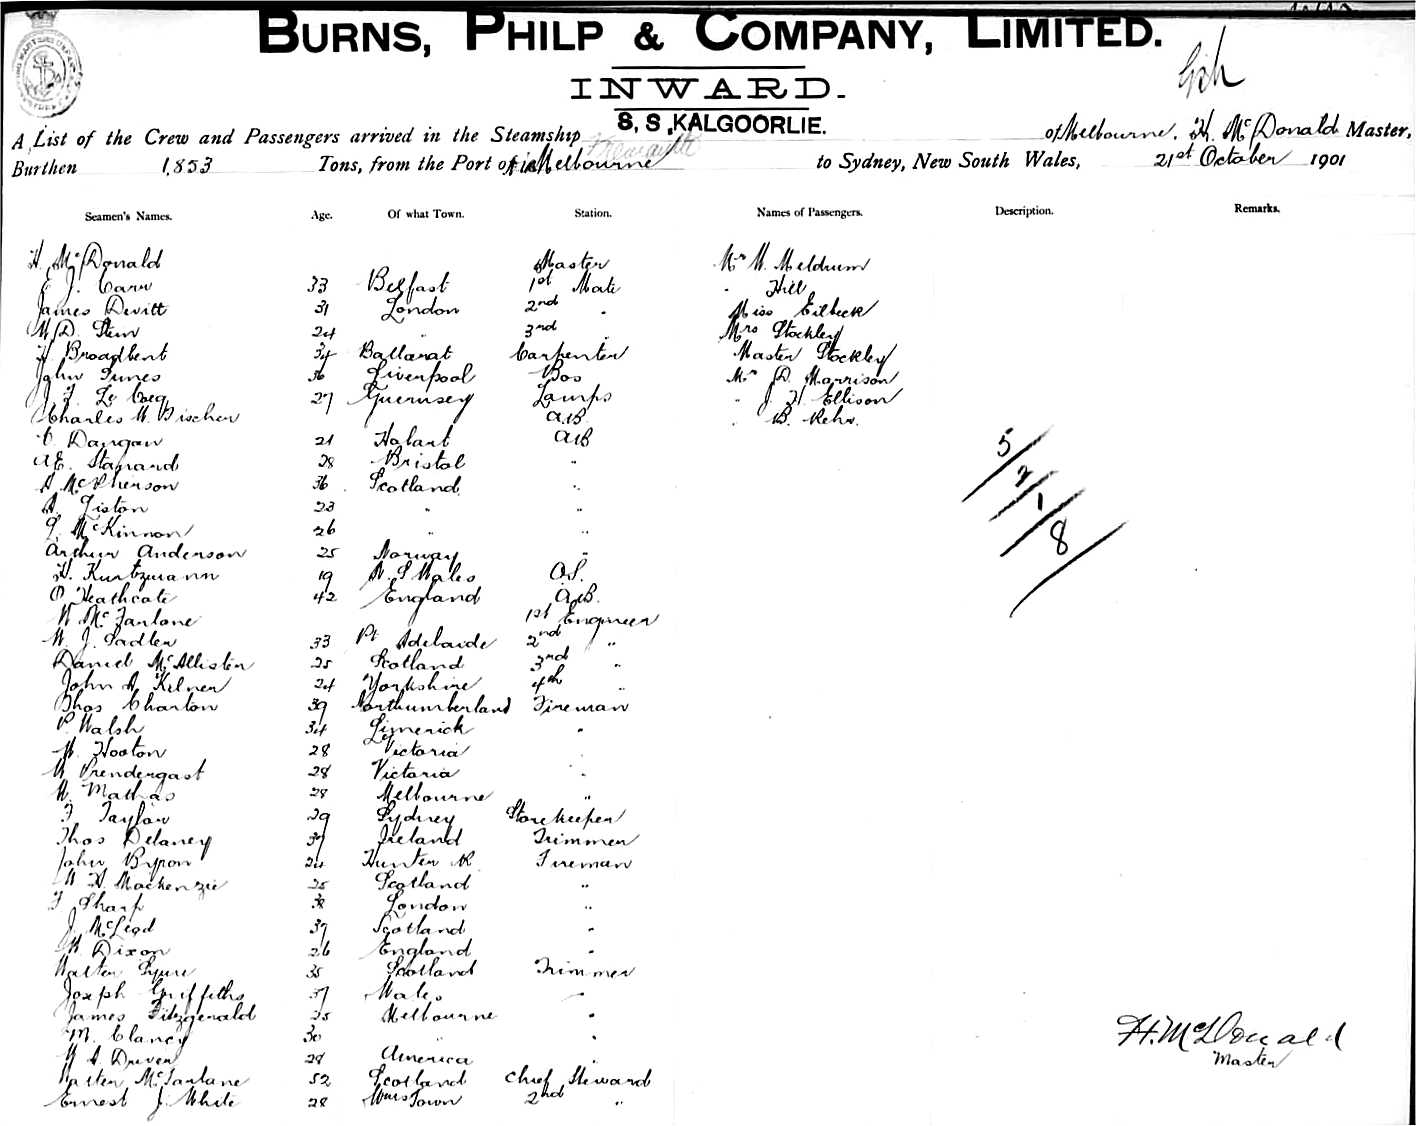 BURNS, PHILP & COMPANY, LIMITED.
INWARD.
S.S. KALGOORLIE.
A List of the Crew and Passengers arrived in the Steamship of Melbourne, H. McDonald Master,
Burthen 1,853 Tons, from the Port of Melbourne to Sydney, New South Wales, 21st October 1901
Seamen's Names. Age. Of what Town. Station. Names of Passengers. Description. Remarks.
H. McDonald Master Mr W. Meldrum
E J. Carr 33 Belfast 1st Mate " Hill
James Devitt 31 London 2nd " Miss Eilbeck
W. D. Stem 24 " 3rd " Mrs Stockley
H. Broadbent 34 Ballarat Carpenter Master Stockley
John Innes 36 Liverpool Bos Mr D. Morrison
J. F. Le Coeg 27 Guernsey Lamps " J. H Ellison
Charles W. Fischer A.B " B. Kehr.
C Dangan 21 Hobart A.B
A E. Stanard 28 Bristol "
D McPherson 36 Scotland "
A. Liston 23 " "
L. McKinnon 26 " "
Arthur Anderson 25 Norway "
H. Kurtzmann 19 N. S Wales O.S.
O Heathcate 42 England A.B.
W McFarlane 1st Engineer
W. J. Sadler 33 Pt Adelaide 2nd "
Daniel McAllister 25 Scotland 3rd "
John A Kilner 24 Yorkshire 4th "
Thos Charlton 39 Northumberland Fireman
P. Walsh 34 Limerick "
W. Hooton 28 Victoria "
W Prendergast 28 Victoria "
W. Mathas 28 Melbourne "
F Taylor 29 Sydney Storekeeper
Thos Delaney 37 Ireland Trimmer
John Byron 24 Hunter R. Fireman
W H. Mackenzie 25 Scotland "
F Sharp 38 London "
J. McLeod 37 Scotland "
W Dixon 26 England "
Walter Squire 35 Scotland Trimmer
Joseph Griffiths 37 Wales "
James Fitzgerald 25 Melbourne "
M. Clancy 30 " "
W A. Driver 28 America "
Walter McFarlane 52 Scotland Chief Steward
Ernest J. White 28 Wms Town 2nd "
5/2/1/8
H. McDonald
Master